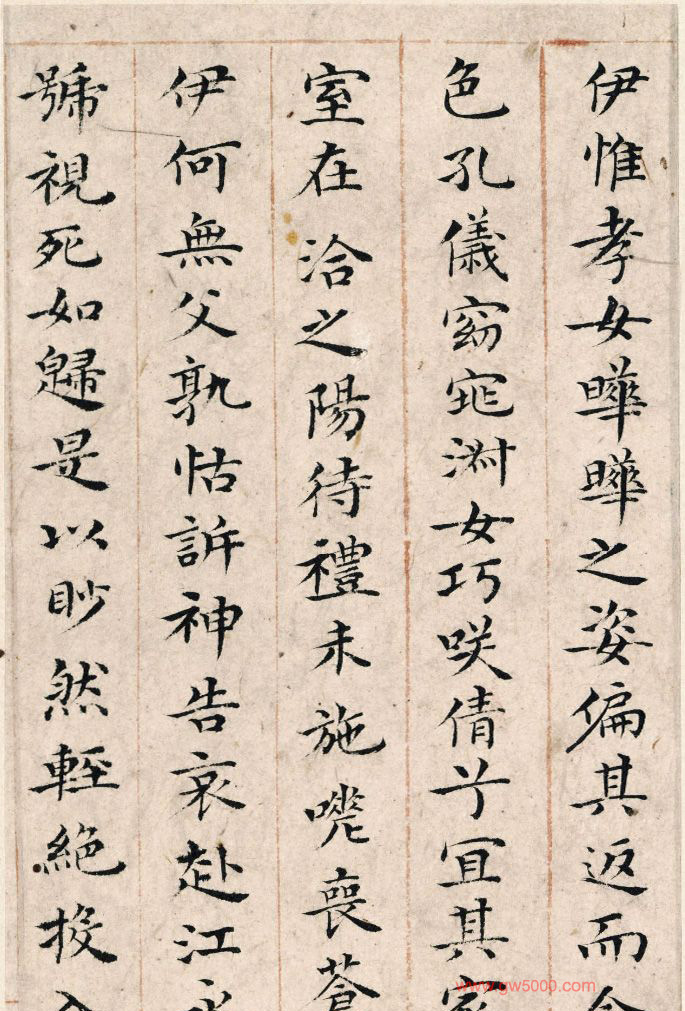 伊惟孝女曄曄之姿偏其返而令
色孔儀窈窕淑女巧咲倩兮冝其家
室在洽之陽待禮未施嗟喪蒼
伊何無父孰怙訴神告哀赴江永
號視死如歸是以眇然輕絕投入
www.gw5000.com